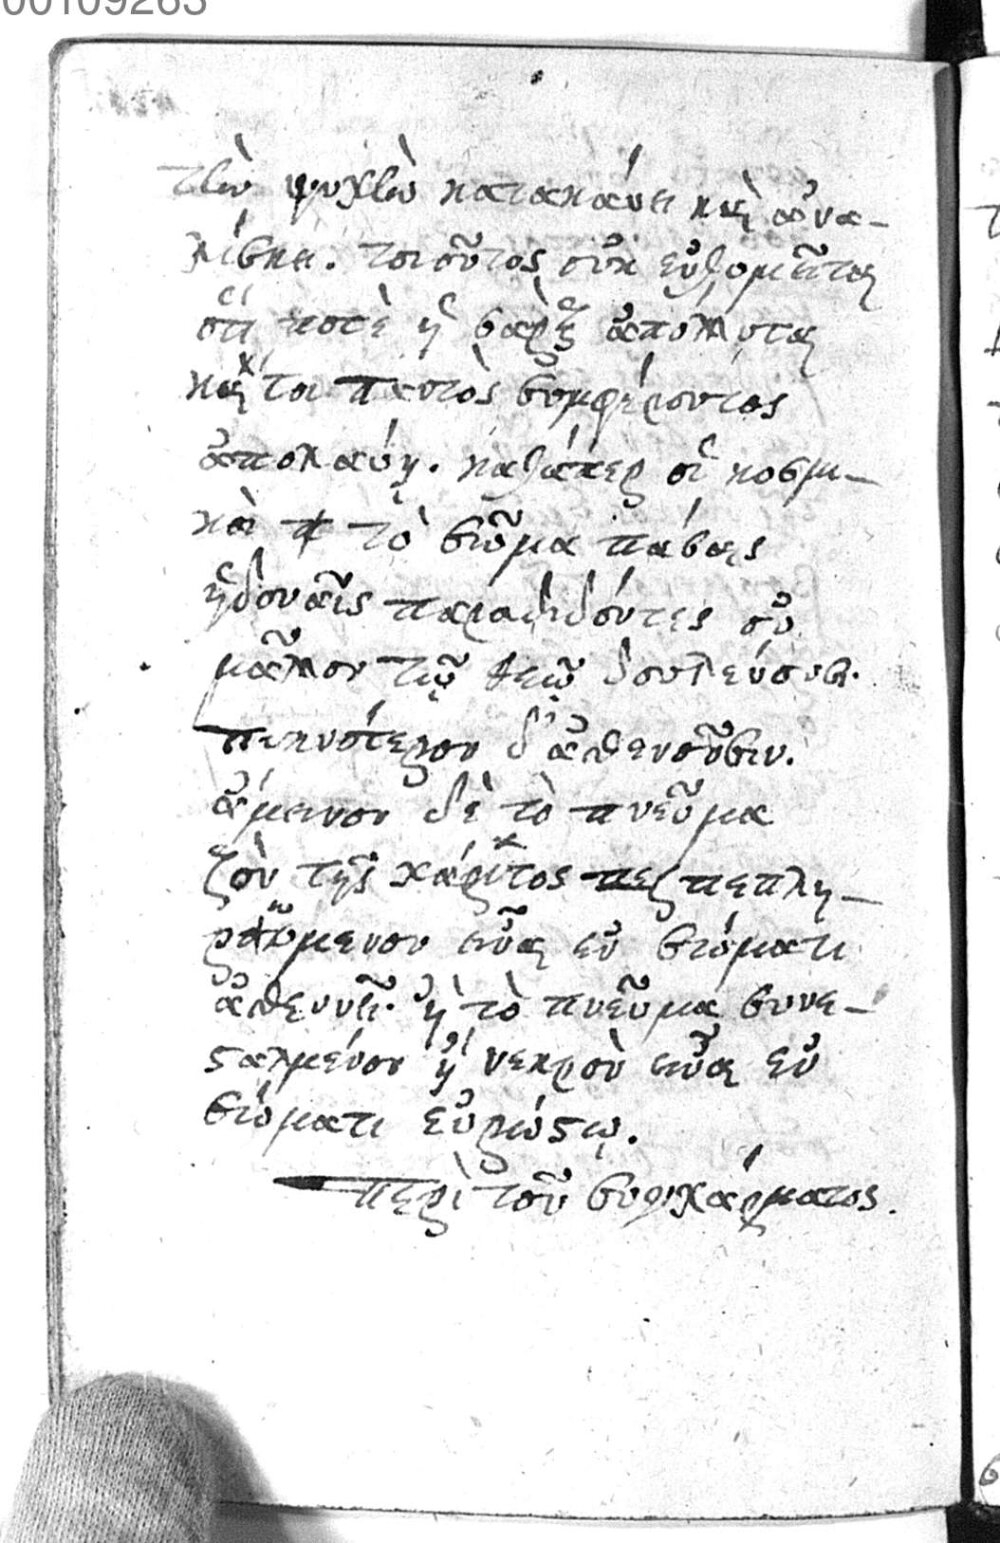 00109263
τὴν ψυχὴν κατακάυει καὶ ἀνα-
λίσκει. τοιοῦτος οὐκ
ὅτι ποτὲ ἡ σὰρξ ἀπόλλυται
καὶ τοι παντὸς συμφέροντος
ἀπολαύῃ. καθάπερ οἱ κοσμι-
κοὶ τὸ σῶμα πάσαις
ἡδοναῖς παραδιδόντες οὐ
μᾶλλον τῷ θεῷ δουλεύουσι.
πυκνότερον δ' ἀσθενοῦσιν.
ἄμεινον δὲ τὸ πνεῦμα
ζὸν τῆς χάριτος πεπλη-
ρωμένον εἶναι ἐν σώματι
ἀσθενεῖ. ἢ τὸ πνεῦμα συνε-
σταλμένον ἢ νεκρὸν εἶναι ἐν
σώματι εὐρώστῳ.
περὶ τοῦ